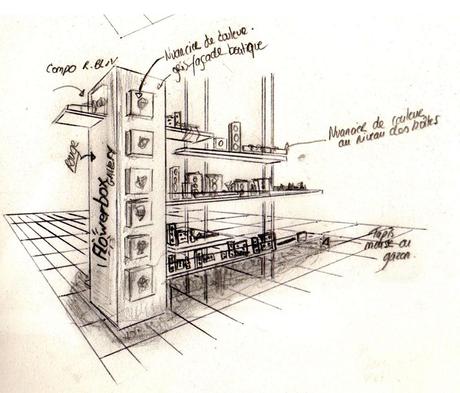 Nuancier de couleur.
gris façade boutique
Compo
Rouge
Flowerbox
GALLERY
Nuancier de couleur
au niveau des boîtes
Tapis
mousse ou
gazon.